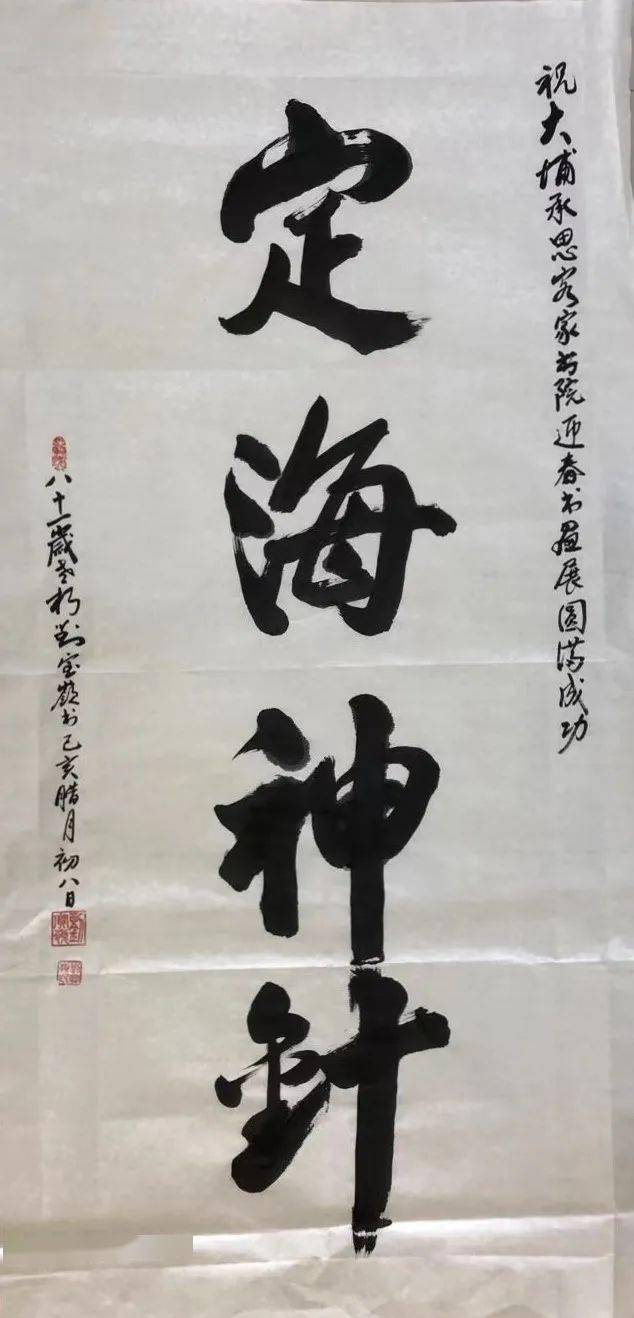 祝大埔承思客家书院迎春书画展圆满成功
定海神針
八十一歲老朽劉宝嶺书己亥腊月初八日